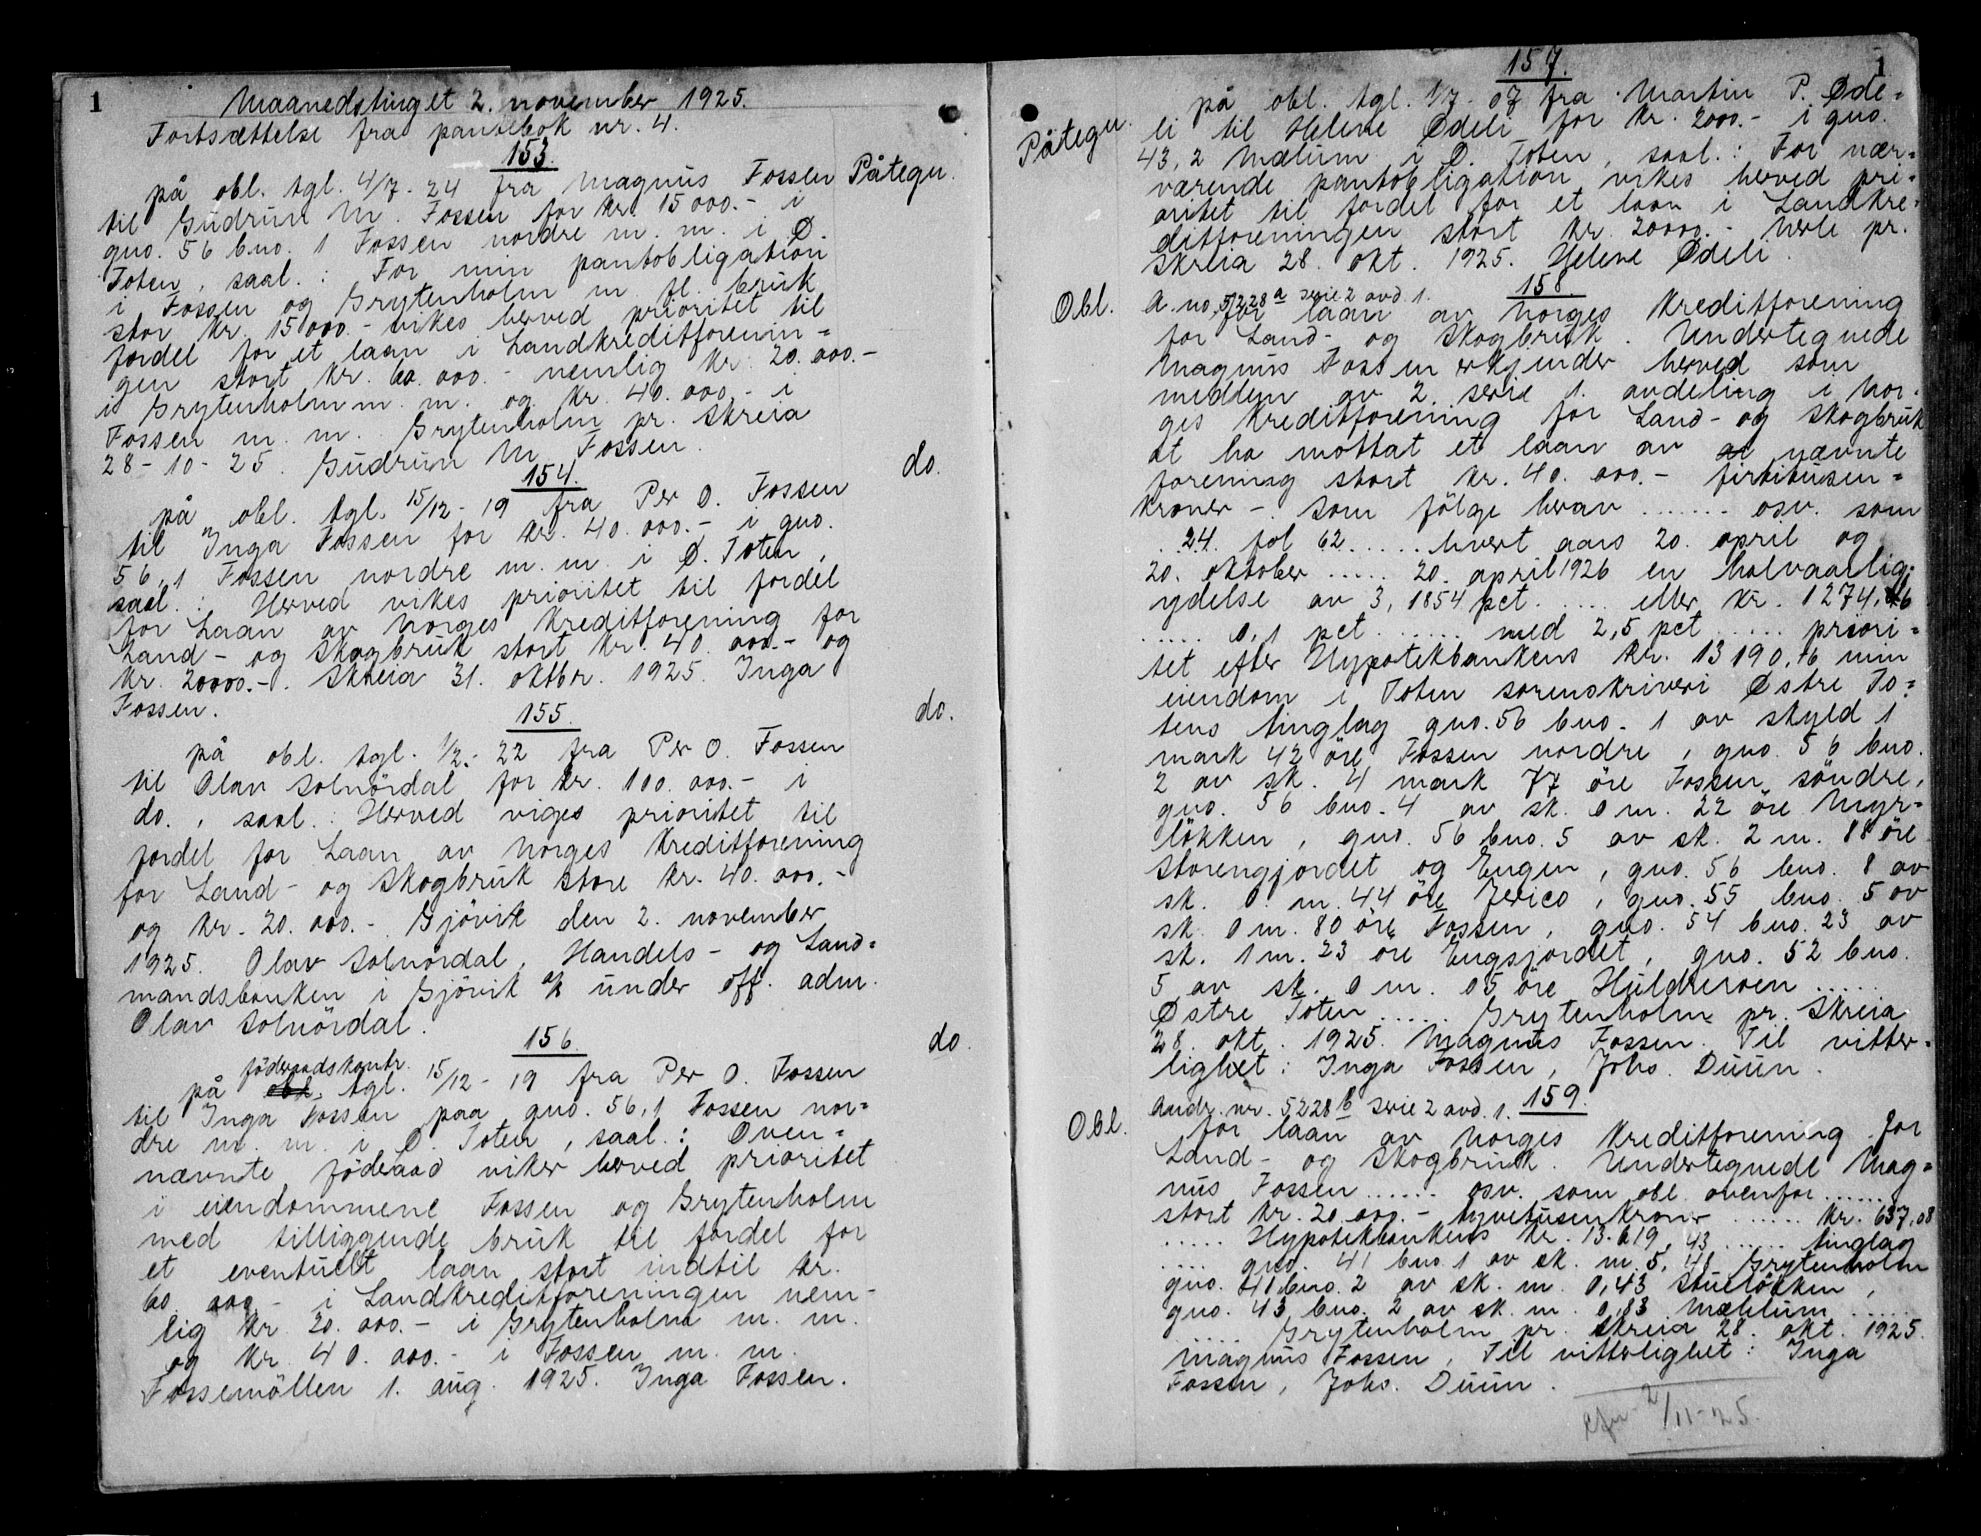 1
Maanedstinget 2. november 1925.
Fortsættelse fra pantebok nr. 4.
153.
på obl. tgl. 4/7-24 fra Magnus Fossen Påtegn.
til Gudrun M. Fossen for kr. 15 000.- i
gno. 56 bno. 1 Fossen nordre m. m. i Ø.
Toten, saal.: For min pantobligation
i Fossen og Grytenholm m fl. bruk
stor kr. 15 000.- vikes herved prioritet til
fordel for et laan i Landkreditforenin=
gen stort kr. 60. 000.- nemlig kr. 20. 000.-
i Grytenholm m. m. og kr. 40. 000.- i
Fossen m. m. Grytenholm pr. Skreia
28-10-25. Gudrun M Fossen.
154. do.
på obl. tgl. 15/12-19 fra Per O. Fossen
til Inga Fossen for kr. 40. 000.- i gno.
56,1 Fossen nordre m. m. i Ø. Toten,
saal.: Herved vikes prioritet til fordel
for Laan av Norges Kreditforening for
Land- og Skogbruk stort kr. 40. 000.- og
kr. 20000.-. Skreia 31. oktbr. 1925. Inga
Fossen.
155. do.
på obl. tgl. 1/2-22 fra Per O. Fossen
til Olav Solnördal for kr. 100. 000.- i
do., saal.: Herved viges prioritet til
fordel for Laan av Norges Kreditforening
for Land- og Skogbruk store kr. 40. 000.-
og kr. 20. 000.- Gjövik den 2. november
1925. Olav Solnördal, Handels- og Land=
mandsbanken i Gjövik a/s under off. adm.
Olav Solnördal.
156. do.
föderaadskontr.
på obl. tgl. 15/12-19 fra Per O. Fossen
til Inga Fossen paa gno. 56,1 Fossen nor=
dre m. m. i Ø. Toten, saal.: Oven=
nævnte föderaad viker herved prioritet
i eiendommene Fossen og Grytenholm
med tilliggende bruk til fordel for
et eventuelt laan stort indtil kr.
60. 000.- i Landkreditforeningen nem-
lig kr. 20. 000.- i Grytenholm m. m.
og kr. 40. 000.- i Fossen m. m.
Fossemöllen 1. aug. 1925. Inga Fossen.
1
157.
Påtegn. på obl. tgl. 1/7-07 fra Martin P. Øde=
li til Helene Ødeli for kr. 2000.- i gno.
43,2 Mælum i Ø. Toten, saal.: For nær=
værende pantobligation vikes herved pri=
oritet til fordel for et laan i Landkre=
ditforeningen stort kr. 20000.- pr.
Skreia 28. okt. 1925. Helene Ødeli.
158.
Obl. A. no. 5228 a serie 2 avd 1.
for laan av Norges Kreditforening
for Land- og Skogbruk. Undertegnede
Magnus Fossen erkjender herved som
medlem av 2. serie 1. avdeling i Nor-
ges Kreditforening for Land- og Skogbruk
at ha mottat et laan av nævnte
forening stort kr. 40. 000.- firtitusen=
kroner -. Som fölge herav ...... osv. som
. 24. fol 62 ..... hvert aars 20. april og
20. oktober ..... 20. april 1926 en halvaarlig
ydelse av 3,1854 pct. .... eller kr. 1274,16
..... 0,1 pct ...... med 2,5 pct .... priori=
tet efter Hypotekbankens kr. 13190,76 min
eiendom i Toten sorenskriveri Østre To=
tens tinglag gno. 56 bno. 1 av skyld 1
mark 42 öre Fossen nordre, gno. 56 bno.
2 av sk. 4 mark 77 öre Fossen söndre,
gno. 56 bno. 4 av sk. 0 m. 22 öre Myr=
lökken, gno. 56 bno. 5 av sk. 2 m. 88 öre
Storengjordet og Engen, gno. 56 bno. 8 av
sk. 0. m. 44 öre Jerico, gno. 55 bno. 5 av
sk. 0 m. 80 öre Fossen, gno. 54 bno. 23 av
sk. 1 m. 23 öre Engsjordet, gno. 52 bno.
5 av sk. 0 m. 05 öre Huldreroen .....
Østre Toten ..... Grytenholm pr. Skreia
28. okt. 1925. Magnus Fossen. Til vitter-
lighet: Inga Fossen, Johs. Duun.
159.
Andr. nr. 5228 b serie 2 avd. 1.
Obl. for laan av Norges Kreditforening for
Land- og Skogbruk. Undertegnede Mag=
nus Fossen ...... osv. som obl. ovenfor ......
stort kr. 20. 000.- tyvetusenkroner ...... kr. 637,08
..... Hypotekbankens kr. 13.619,43 ..... tinglag
.... gno. 41 bno. 1 av sk. m. 5,48 Grytenholm
gno. 41 bno. 2 av sk. m. 0,43 Stuelökken,
gno. 43 bno. 2 av sk. m. 0,83 Mæhlum .....
..... Grytenholm pr. Skreia 28. okt. 1925.
Magnus Fossen. Til vitterlighet: Inga
Fossen, Johs. Duun.
2/11-25.